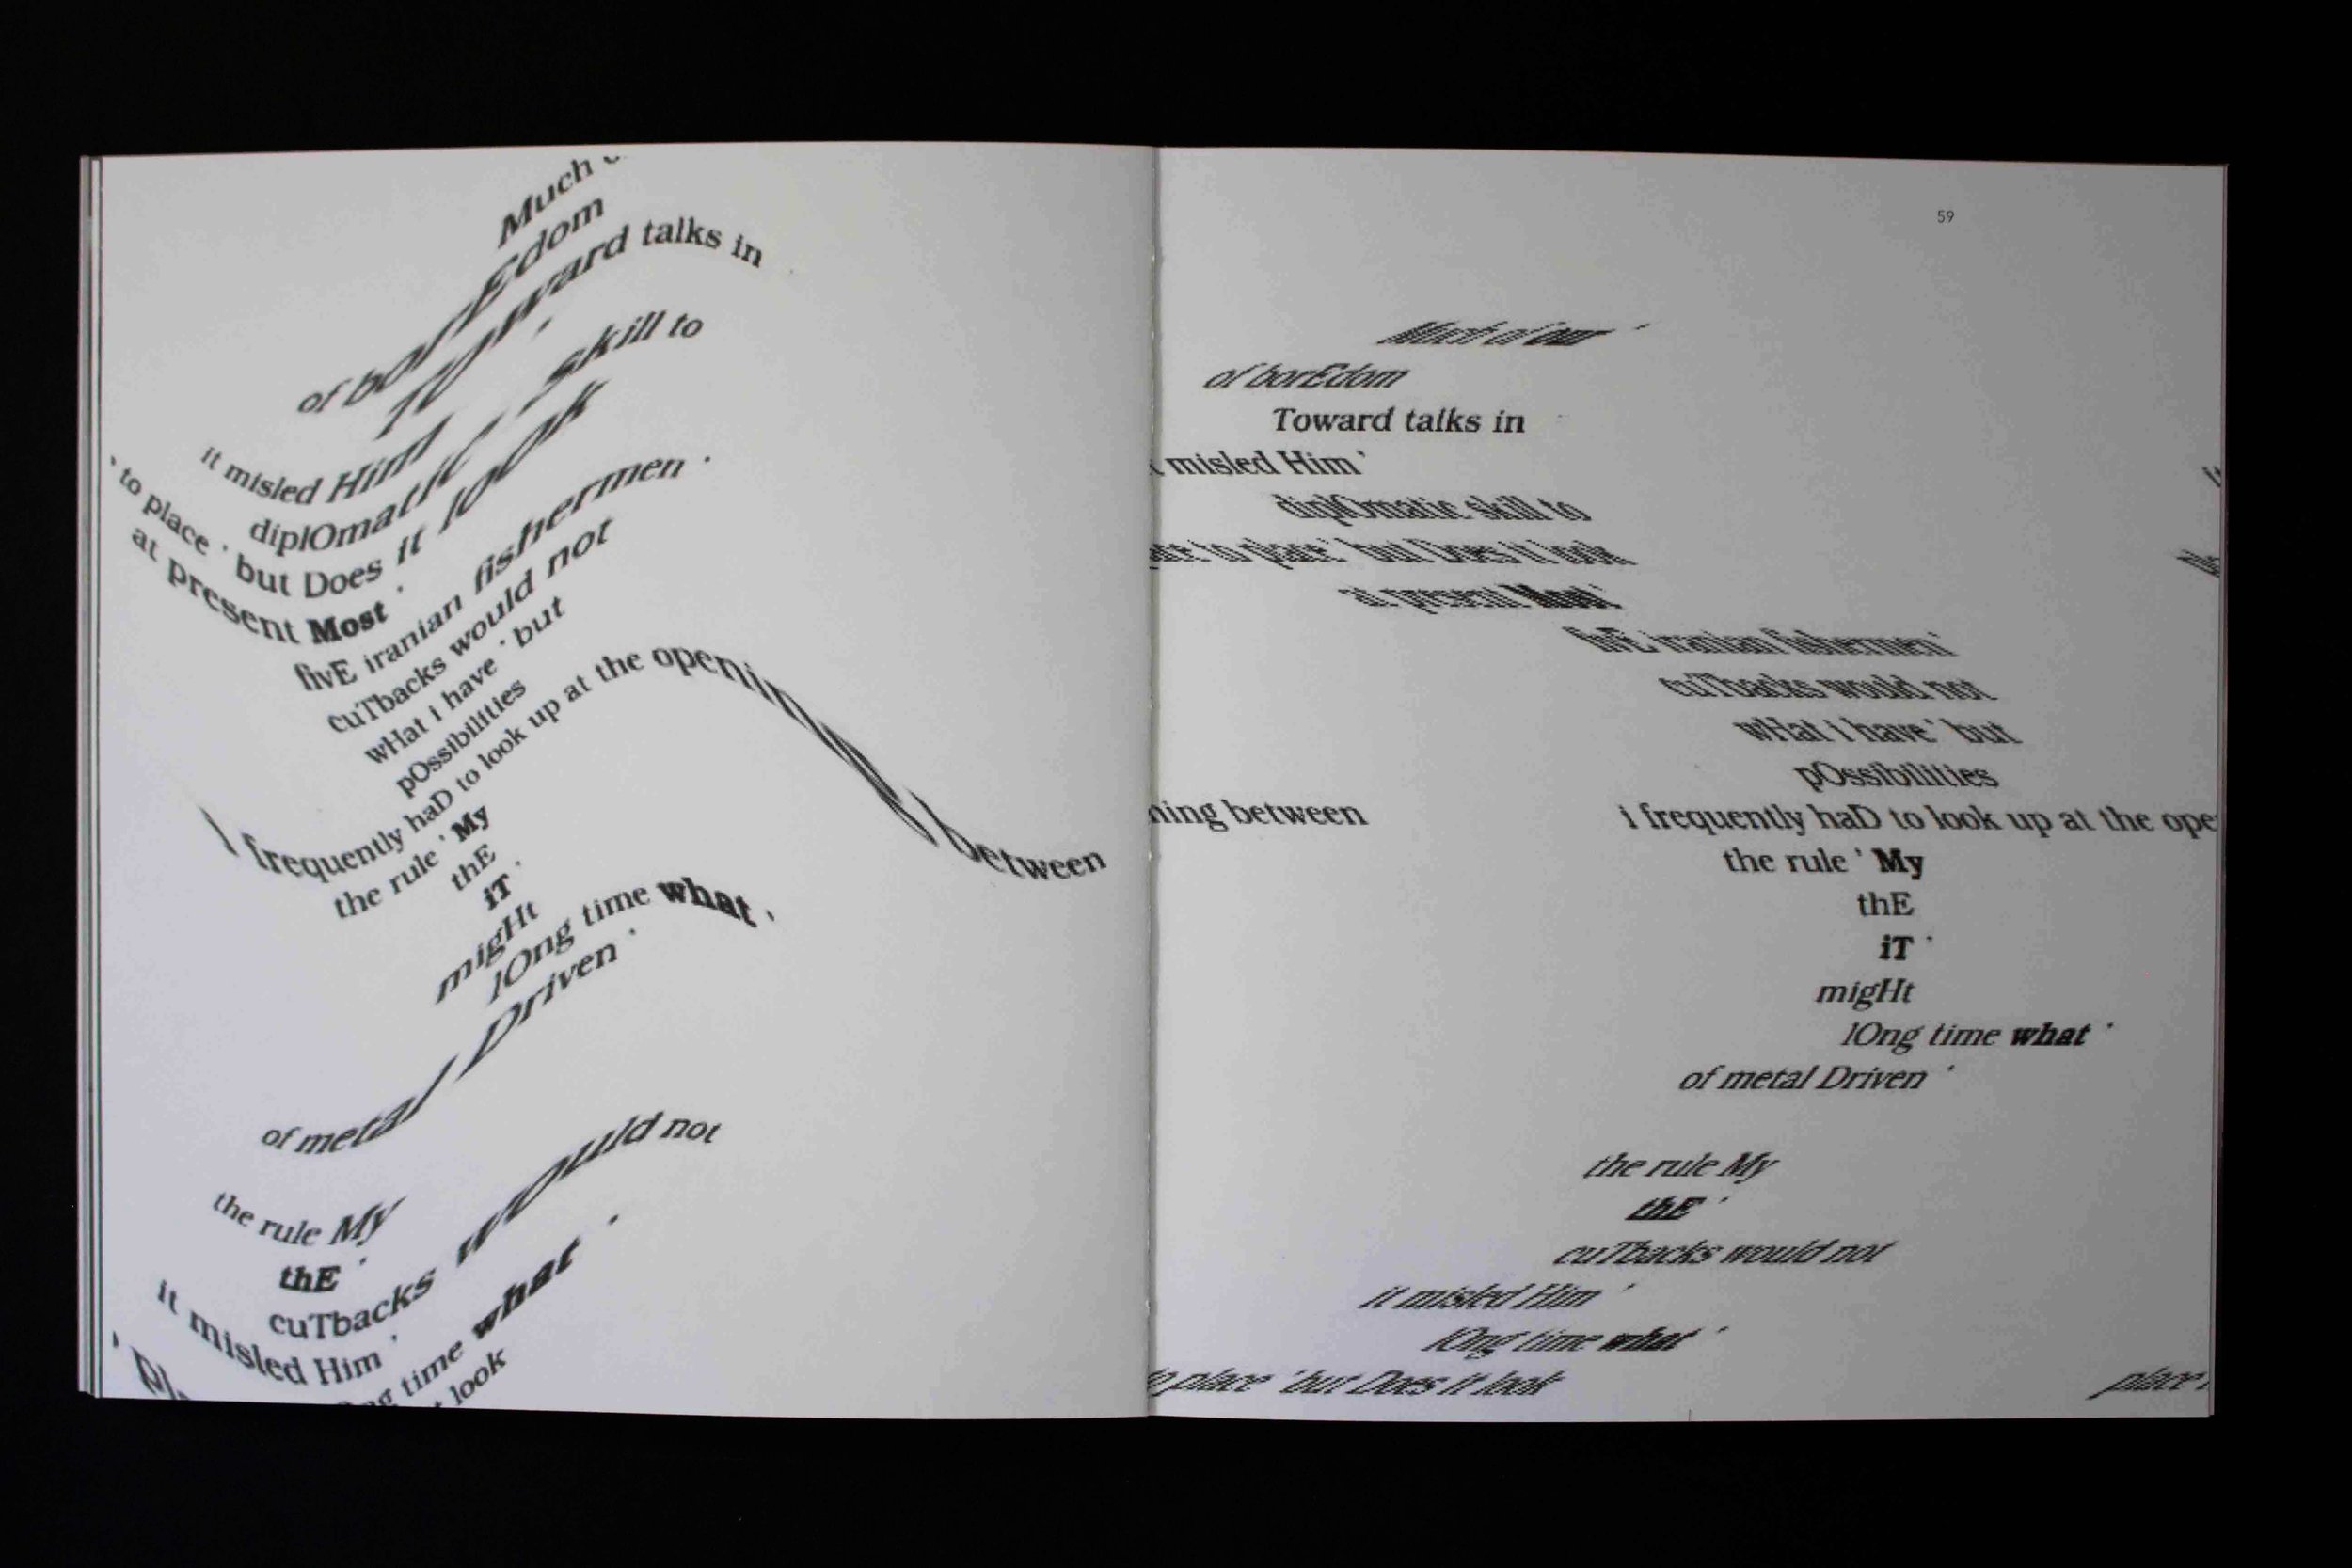 Much
of borEdom
Toward talks in
it misled Him '
diplOmatic skill to
' to place ' but Does it look
at present Most '
fivE iranian fishermen '
cuTbacks would not
wHat i have ' but
pOssibilities
i frequently haD to look up at the opening between
the rule ' My
thE
iT '
migHt
lOng time what '
of metal Driven '
the rule My
thE '
cuTbacks would not
it misled Him '
time what '
look
59
Much of our '
of borEdom
Toward talks in
misled Him '
diplOmatic skill to
to place ' but Does it look
at present Most '
fivE iranian fishermen '
cuTbacks would not
wHat i have ' but
pOssibilities
ning between
i frequently haD to look up at the ope
the rule ' My
thE
iT '
migHt
lOng time what '
of metal Driven '
the rule My
thE '
cuTbacks would not
it misled Him '
lOng time what '
place ' but Does it look
place